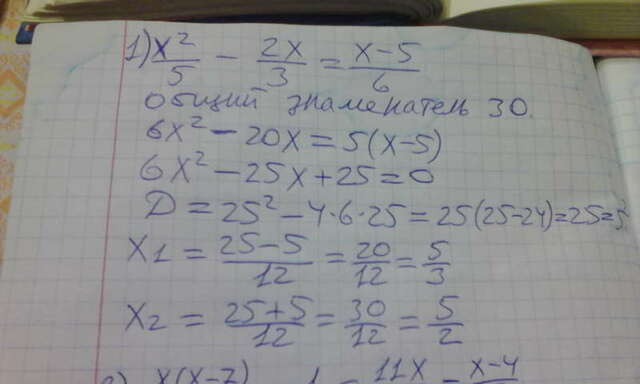 1) x²/5 − 2x/3 = x−5/6
Общий знаменатель 30.
6x² − 20x = 5(x−5)
6x² − 25x + 25 = 0
D = 25² − 4·6·25 = 25(25−24) = 25 = 5²
x1 = 25−5/12 = 20/12 = 5/3
x2 = 25+5/12 = 30/12 = 5/2
x(x−7) 1 = 11x x−4